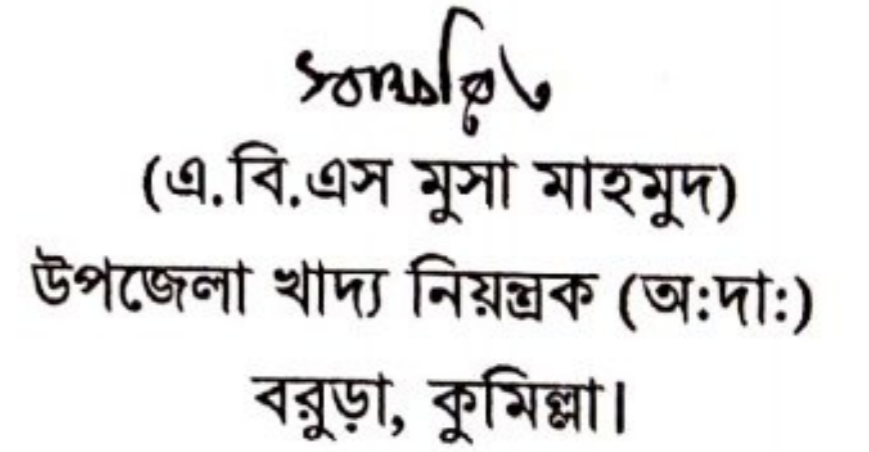 স্বাক্ষরিত
(এ.বি.এস মুসা মাহমুদ)
উপজেলা খাদ্য নিয়ন্ত্রক (অ:দা:)
বরুড়া, কুমিল্লা।